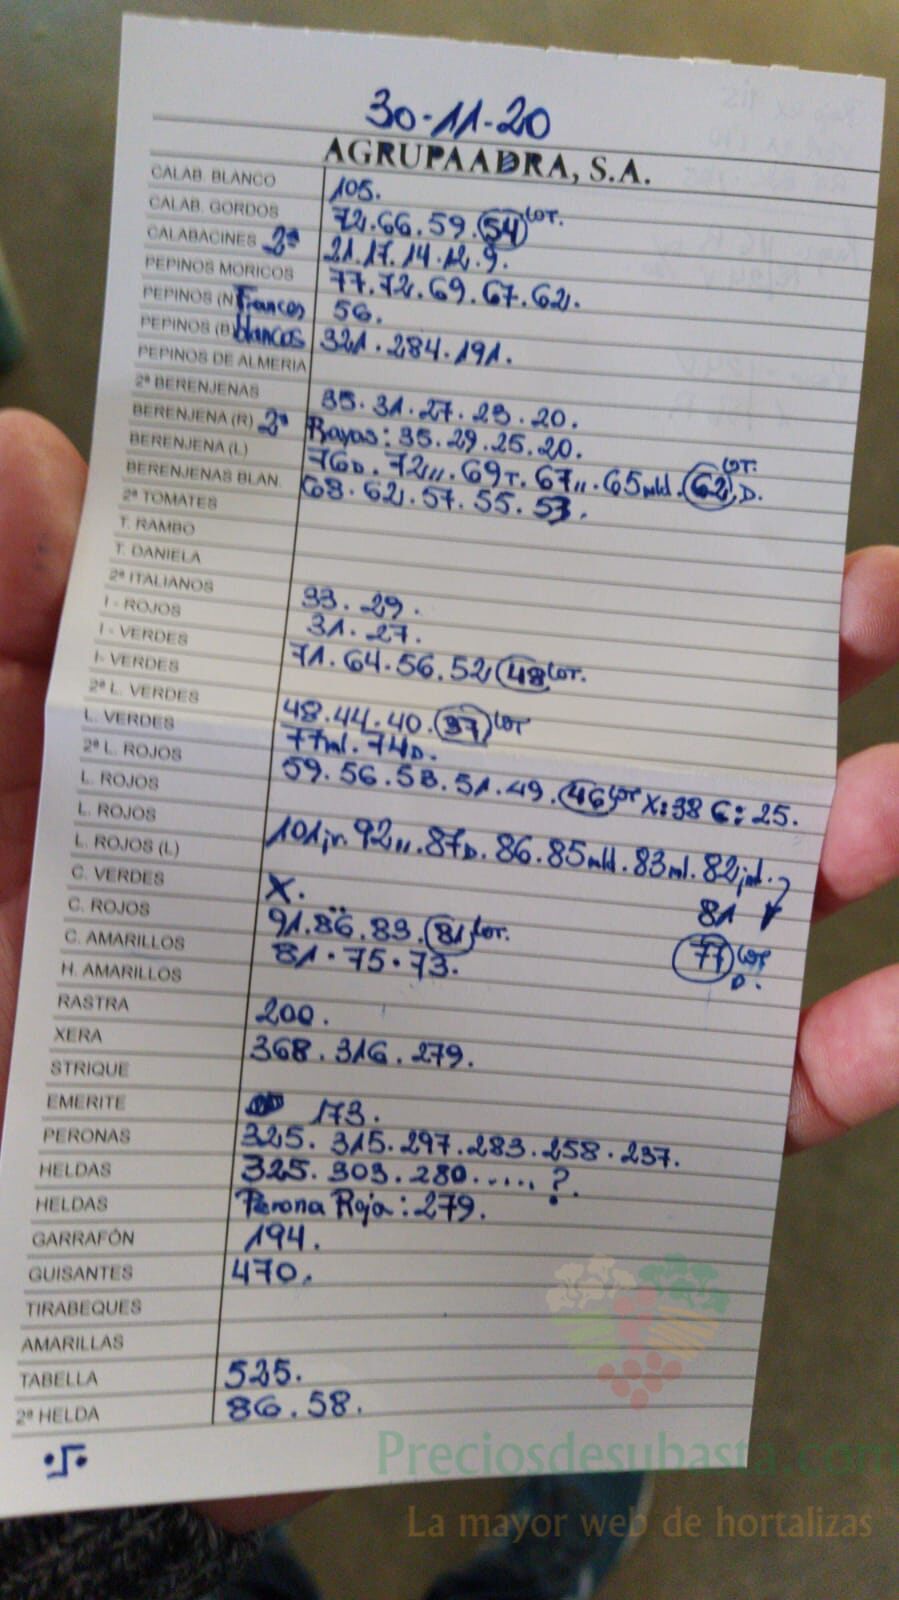 30-11-20
AGRUPAADRA, S.A.
CALAB. BLANCO 105.
CALAB. GORDOS 72.66.59.54 COT.
CALABACINES 2ª 21.17.14.12.9.
PEPINOS MORICOS 77.72.69.67.62.
PEPINOS (N) Frances 56.
PEPINOS (B) blancos 321.284.191.
PEPINOS DE ALMERIA
2ª BERENJENAS 35.31.27.23.20.
BERENJENA (R) 2ª Rayas: 35.29.25.20.
BERENJENA (L) 76D. 72,,. 69T. 67,,. 65mld. 62 COT. D.
BERENJENAS BLAN. 68.62.57.55.53.
2ª TOMATES
T. RAMBO
T. DANIELA
2ª ITALIANOS 33.29.
I - ROJOS 31.27.
I - VERDES 71.64.56.52 48 COT.
I- VERDES
2ª L. VERDES 48.44.40. 37 COT
L. VERDES 77ml. 74D.
2ª L. ROJOS 59.56.53.51.49. 46 COT X:38 G:25.
L. ROJOS
L. ROJOS 101jr. 92,,. 87D. 86. 85mld. 83ml. 82jml.
L. ROJOS (L) 81
C. VERDES X.
C. ROJOS 91.86.83. 81 COT. 77 COT D.
C. AMARILLOS 81.75.73.
H. AMARILLOS
RASTRA 200.
XERA 368.316.279.
STRIQUE
EMERITE 173.
PERONAS 325. 315. 297. 283. 258. 237.
HELDAS 325. 303. 280...... ?.
HELDAS Perona Roja: 279.
GARRAFÓN 194.
GUISANTES 470.
TIRABEQUES
AMARILLAS
TABELLA 525.
2ª HELDA 86.58.
Preciosdesubasta.com
La mayor web de hortalizas